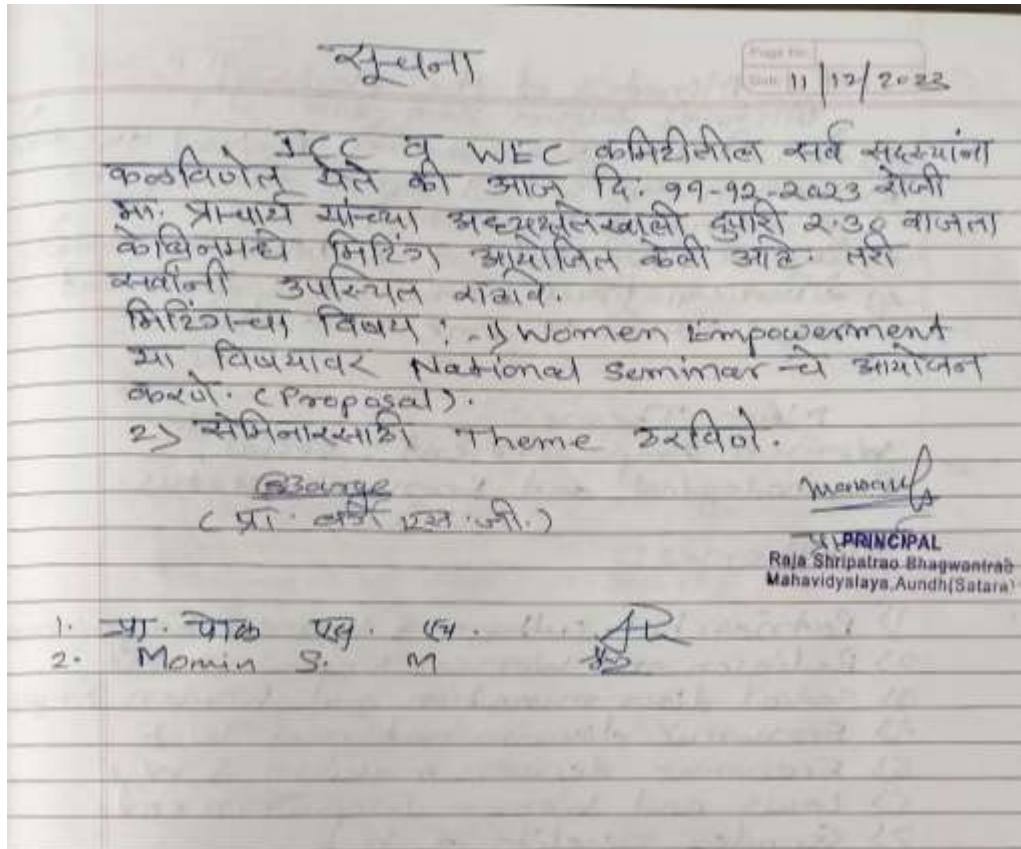 सूचना
Page No.
Date 11/12/2023
ICC व WEC कमिटीतील सर्व सदस्यांना
कळविणेत येते की आज दि. ११-१२-२०२३ रोजी
मा. प्राचार्य यांच्या अध्यक्षतेखाली दुपारी २.३० वाजता
केबिनमध्ये मिटिंग आयोजित केली आहे. तरी
सर्वांनी उपस्थित रहावे.
मिटिंगचा विषय :- 1) Women Empowerment
या विषयावर National Seminar चे आयोजन
करणे. (Proposal).
2) सेमिनारसाठी Theme ठरविणे.
(प्रा. बर्गे एस.जी.)
PRINCIPAL
Raja Shripatrao Bhagwantrao
Mahavidyalaya, Aundh(Satara)
1. प्रा. पोळ एल. एच.
2. Momin S. M